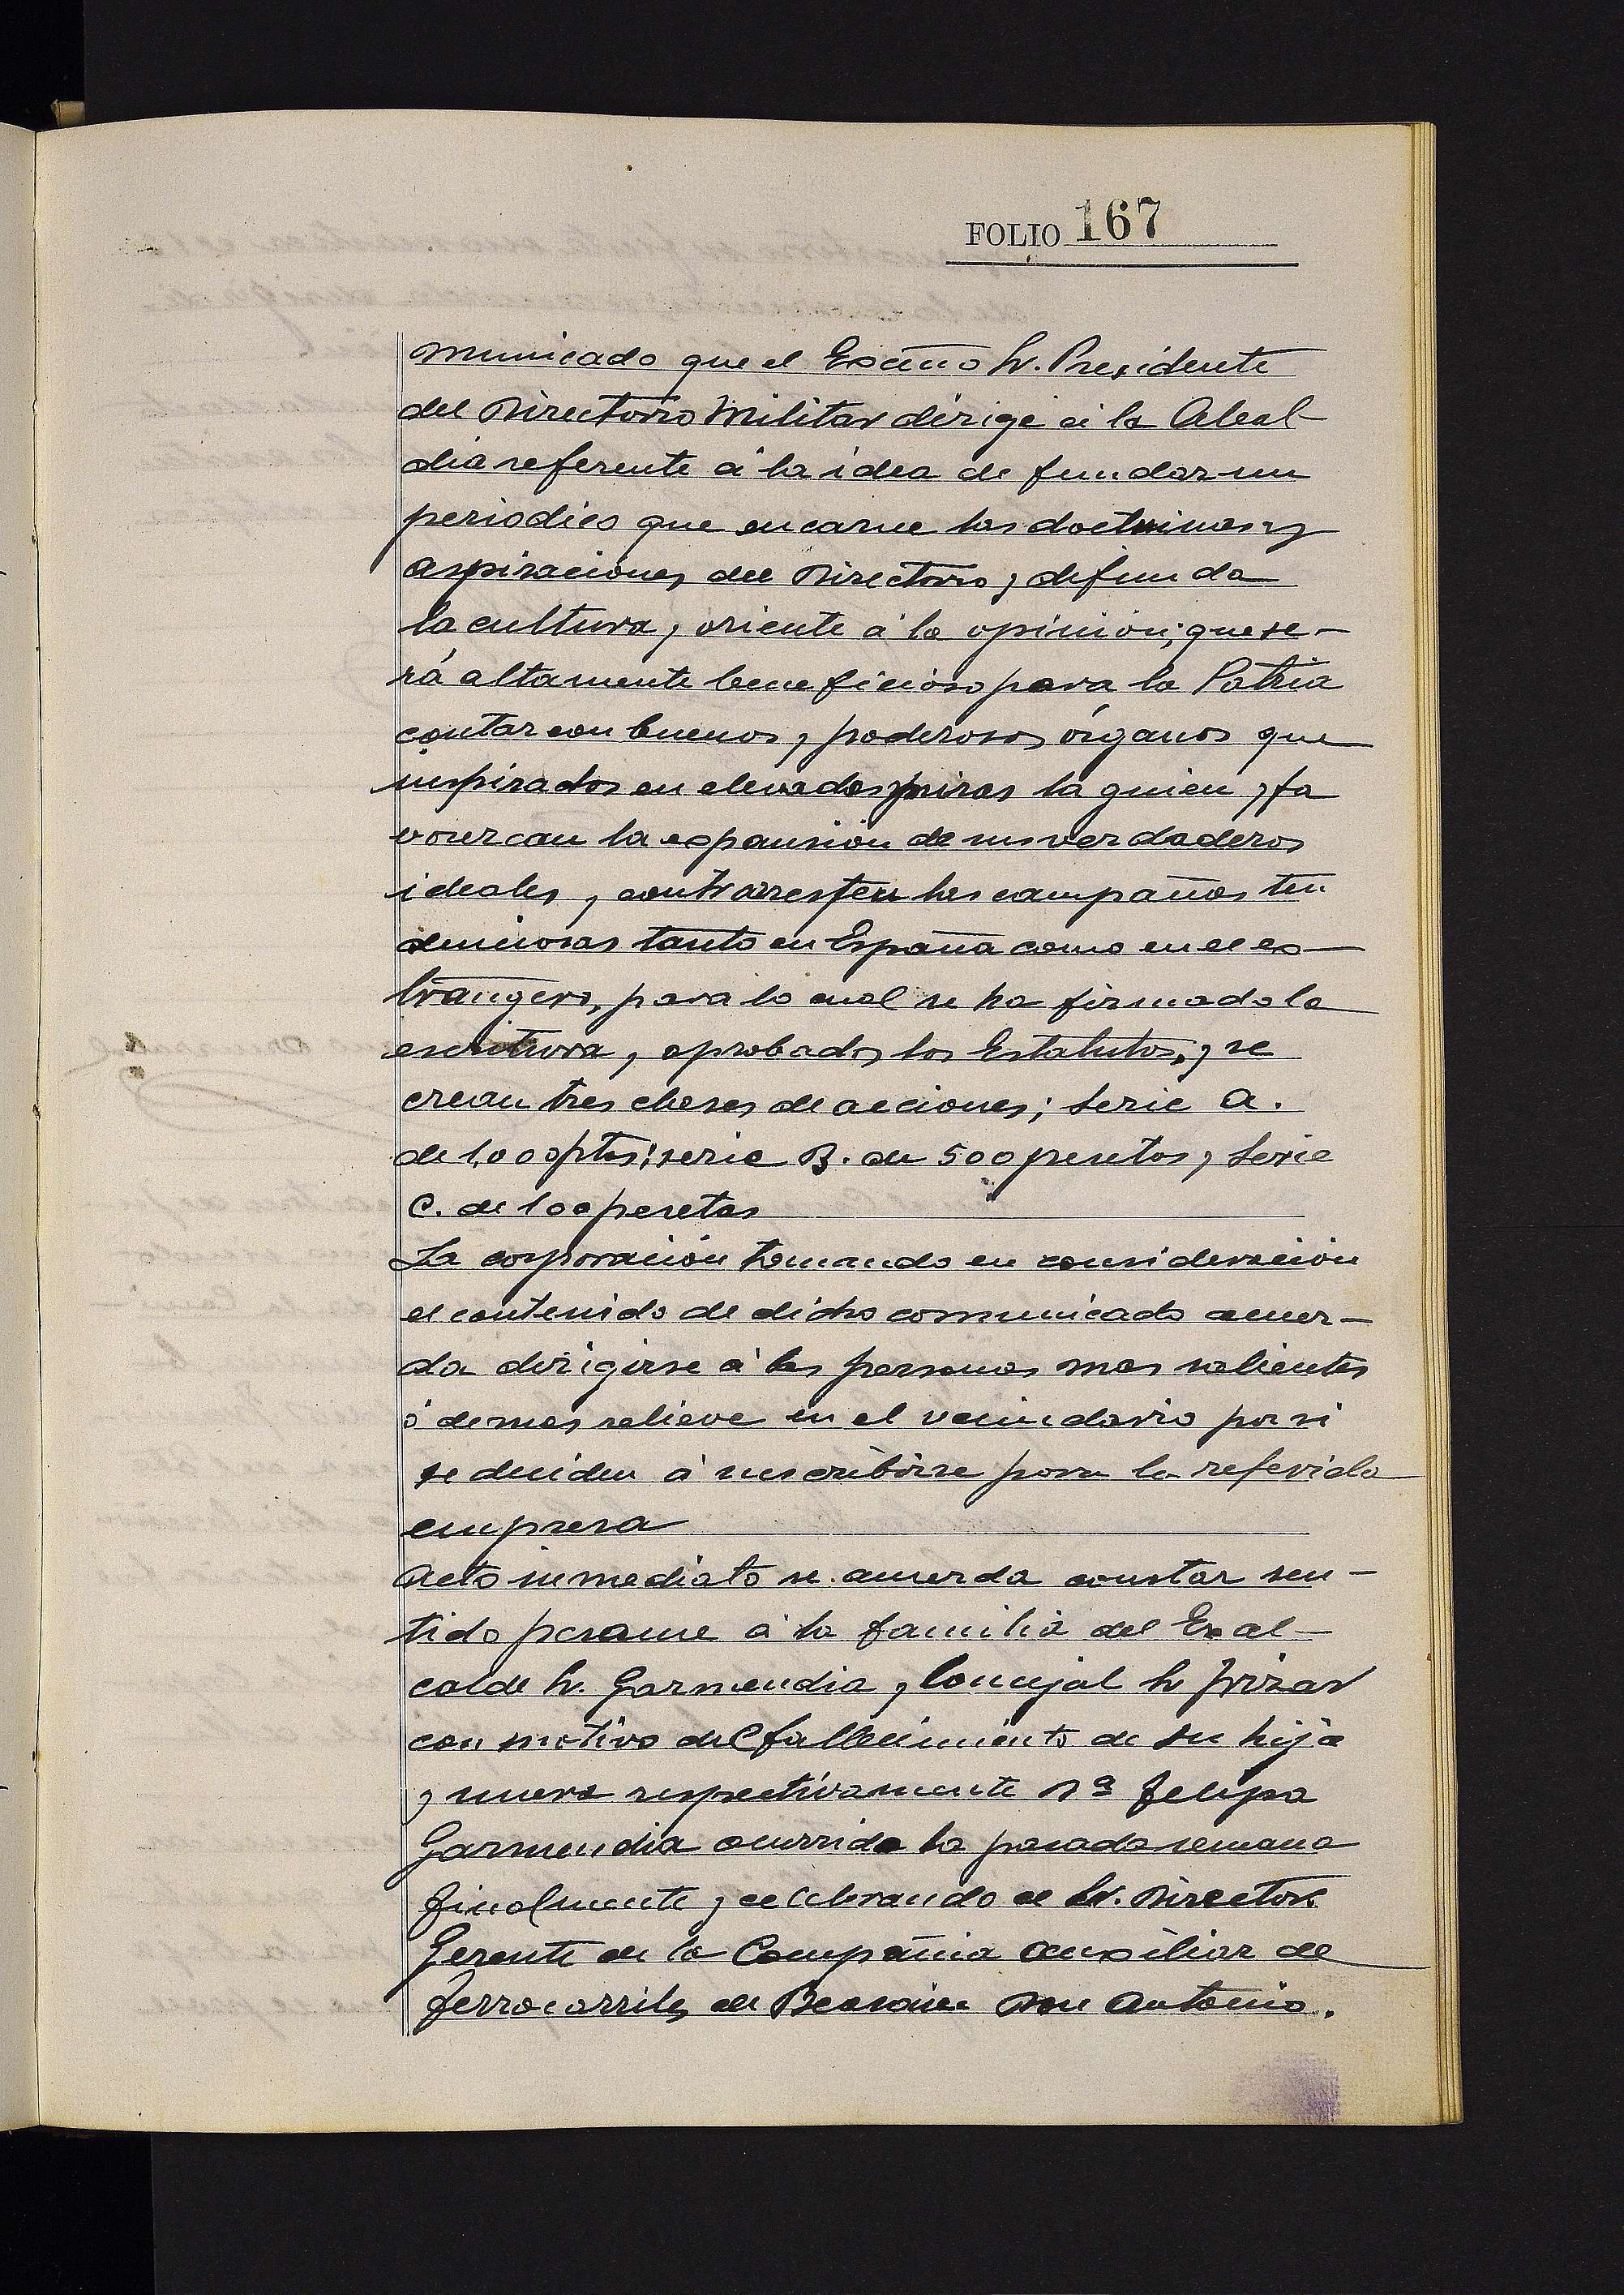 FOLIO 167
municado que el Excmo Sr. Presidente
del Directorio Militar dirige á la Alcal-
dia referente á la idea de fundar un
periodico que encarne las doctrinas y
aspiraciones del Directorio, y defienda
la cultura, y oriente á la opinión; que se-
rá altamente beneficioso para la Patria
contar con buenos y poderosos órganos que
inspirados en elevadas miras la guien y fa
vorezcan la expansión de sus verdaderos
ideales, y contrarresten las campañas ten
denciosas tanto en España como en el ex-
trangero, para lo cual se ha firmado la
escritura, y aprobados los Estatutos, y se
crean tres clases de acciones; Serie A.
de 1,000 ptas; serie B. de 500 pesetas, y Serie
C. de 100 pesetas
La corporación tomando en consideración
el contenido de dicho comunicado acuer-
da dirigirse á las personas mas salientes
ó de mas relieve en el vecindario por si
se deciden á suscribirse para la referida
empresa
Acto inmediato se acuerda constar sen-
tido pesame á la familia del Exal-
calde Sr. Garmendia y Concejal Sr
con motivo del fallecimiento de su hija
y nuera respectivamente Dª Felipa
Garmendia ocurrido la pasada semana
Finalmente y celebrando el Sr. Director
Gerente de la Compañia Auxiliar de
Ferrocarriles de Beasain Don Antonio.